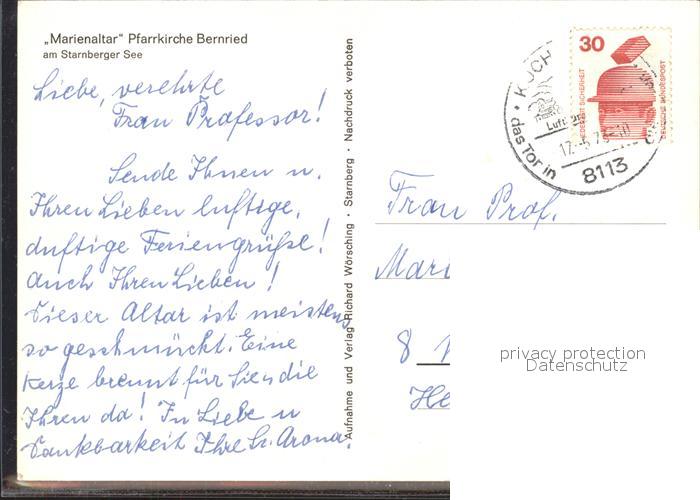 „Marienaltar" Pfarrkirche Bernried
am Starnberger See
Liebe, verehrte
Frau Professor!
Sende Ihnen u.
Ihren Lieben luftige,
duftige Feriengrüße!
Auch Ihren Lieben!
Dieser Altar ist meistens
so geschmückt. Eine
Kerze brennt für Sie u die
Ihren da! In Liebe u
Dankbarkeit Ihre
Aufnahme und Verlag Richard Wörsching · Starnberg · Nachdruck verboten
30
JEDERZEIT SICHERHEIT
DEUTSCHE BUNDESPOST
das Tor in
8113
Frau Prof.
Mari
8
He
privacy protection
Datenschutz